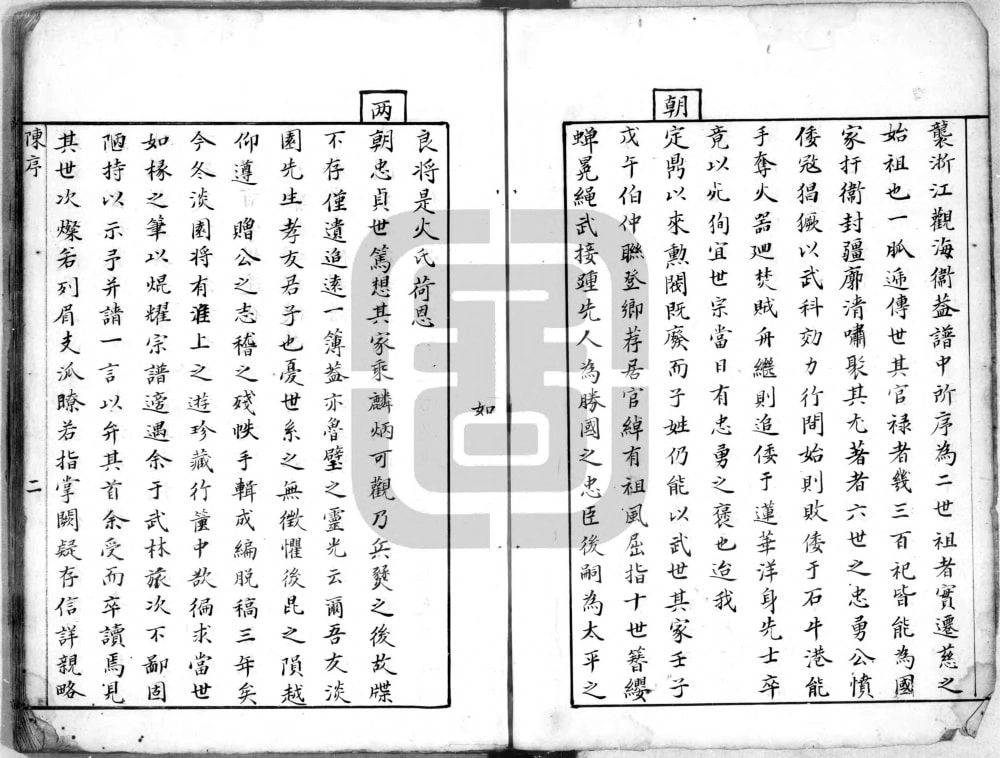 襲浙江觀海衞葢譜中所序為二世祖者實遷慈之
始祖也一脈遞傳世其官禄者幾三百祀皆能為國
家扞衞封疆廓清嘯聚其尢著者六世之忠勇公憤
倭㓂猖獗以武科効力行間始則敗倭于石牛港能
手奪火器廻焚賊舟繼則追倭于蓮華洋身先士卒
竟以死徇宜世宗當日有忠勇之褒也迨我
朝
定鼎以來勲閥既廢而子姓仍能以武世其家壬子
戊午伯仲聯登鄉荐居官綽有祖風屈指十世簪纓
蟬冕繩武接踵先人為勝國之忠臣後嗣為太平之
如
良將是火氏荷恩
两
朝忠貞世篤想其家乘麟炳可觀乃兵燹之後故牒
不存僅遺追遠一簿葢亦魯壁之靈光云爾吾友淡
園先生孝友君子也憂世系之無徵懼後昆之隕越
仰遵 贈公之志稽之殘帙手輯成編脱稿三年矣
今冬淡園將有淮上之遊珍藏行篋中欲徧求當世
如椽之筆以焜耀宗譜適遇余于武林旅次不鄙固
陋持以示予并請一言以弁其首余受而卒讀焉見
其世次燦若列眉支派瞭若指掌闕疑存信詳親略
陳序 二